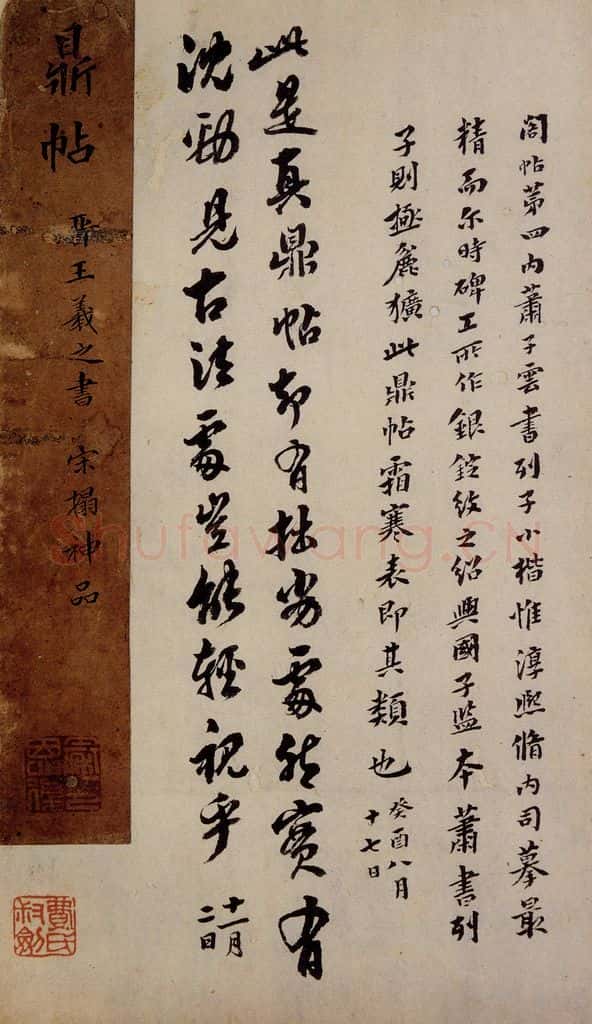 閤帖第四内蕭子雲書列子小楷惟淳熙脩内司摹最
精而尔時碑工所作銀錠紋之紹興國子監本蕭書列
子則極麄獷此鼎帖霜寒表即其類也
癸酉八月
十七日
此是真鼎帖却有拙劣處然實有
沈勁見古法處豈能輕視乎
十一月
二日
鼎帖
晉王羲之書
宋搨神品
Shufawang.CN